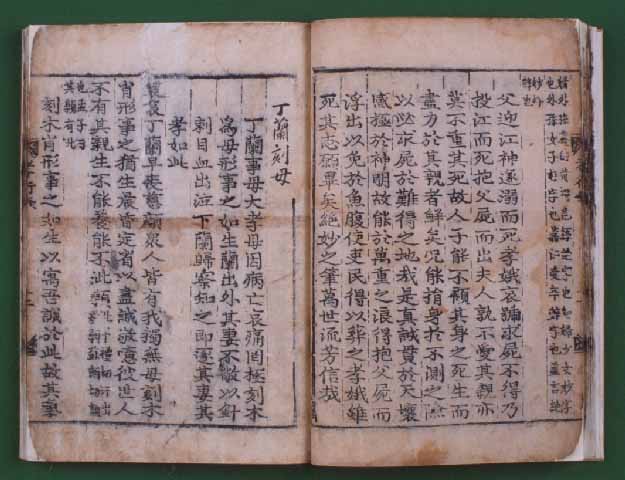 父迎江神遂溺而死孝娥哀踊求屍不得乃
投江而死抱父屍而出夫人孰不愛其親亦
莫不重其死故人子能不顧其身之死生而
盡力於其親者鮮矣況能捐身於不測之淵
以求屍於難得之地我是真誠貫於天壤
感極於神明故能於萬重之浪得抱父屍而
浮出以免於魚腹使吏民得以葬之孝娥雖
死其志願畢矣絶妙之筆萬世流芳信哉
丁蘭刻母
丁蘭事母大孝母因病亡哀痛罔極刻木
為母形事之如生蘭出外其妻不敬以針
刺目血出泣下蘭歸察知之即逐其妻其
孝如此
哀哀丁蘭早喪慈顔衆人皆有我獨無母刻木
肖形事之猶生晨昏定省以盡誠敬噫彼世人
不有其親生不能養能不泚顙
刻木肖形事之如生以寓吾誠於此故其妻